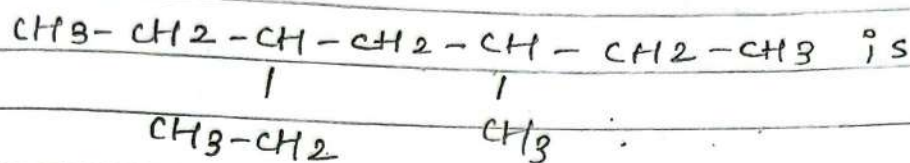 CH3- CH2 -CH -CH2 -CH - CH2 -CH3 is
| |
CH3-CH2 CH3 .